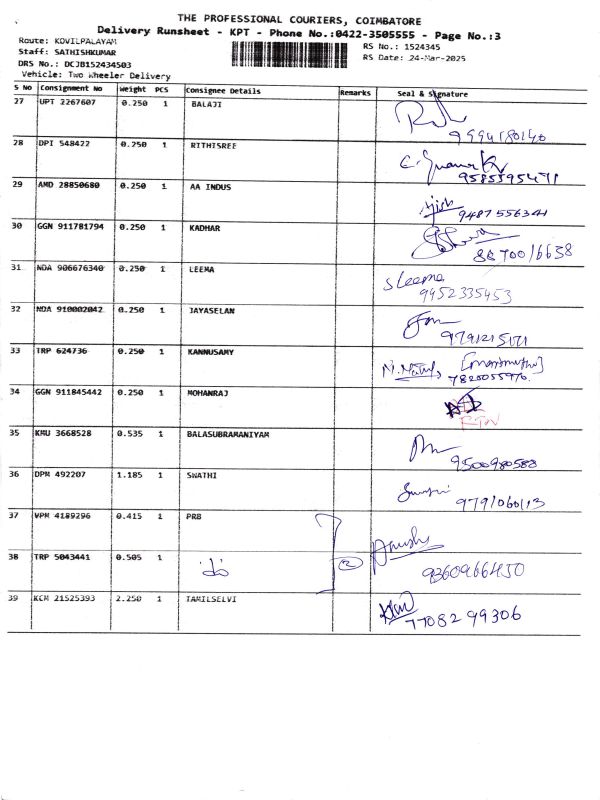 THE PROFESSIONAL COURIERS, COIMBATORE
Delivery Runsheet - KPT - Phone No.:0422-3505555 - Page No.:3
Route: KOVILPALAYAM
RS No.: 1524345
Staff: SATHISHKUMAR
RS Date: 24-Mar-2025
DRS No.: DCJB152434503
Vehicle: Two Wheeler Delivery
S No Consignment No Weight PCS Consignee Details Remarks Seal & Signature
27 UPT 2267607 0.250 1 BALAJI
28 DPI 548422 0.250 1 RITHISREE
9585595471
29 AMD 28850680 0.250 1 AA INDUS
9487556341
30 GGN 911781794 0.250 1 KADHAR
31 NDA 906676340 0.250 1 LEEMA
sleema
9952335453
32 NDA 910002042 0.250 1 JAYASELAN
33 TRP 624736 0.250 1 KANNUSAMY
34 GGN 911845442 0.250 1 MOHANRAJ
RTN
35 KMU 3668528 0.535 1 BALASUBRAMANIYAM
9500980588
36 DPM 492207 1.185 1 SWATHI
9791060113
37 VPM 4189296 0.415 1 PRB
38 TRP 5043441 0.505 1 (2)
9360966450
39 KCM 21525393 2.250 1 TAMILSELVI
7708299306